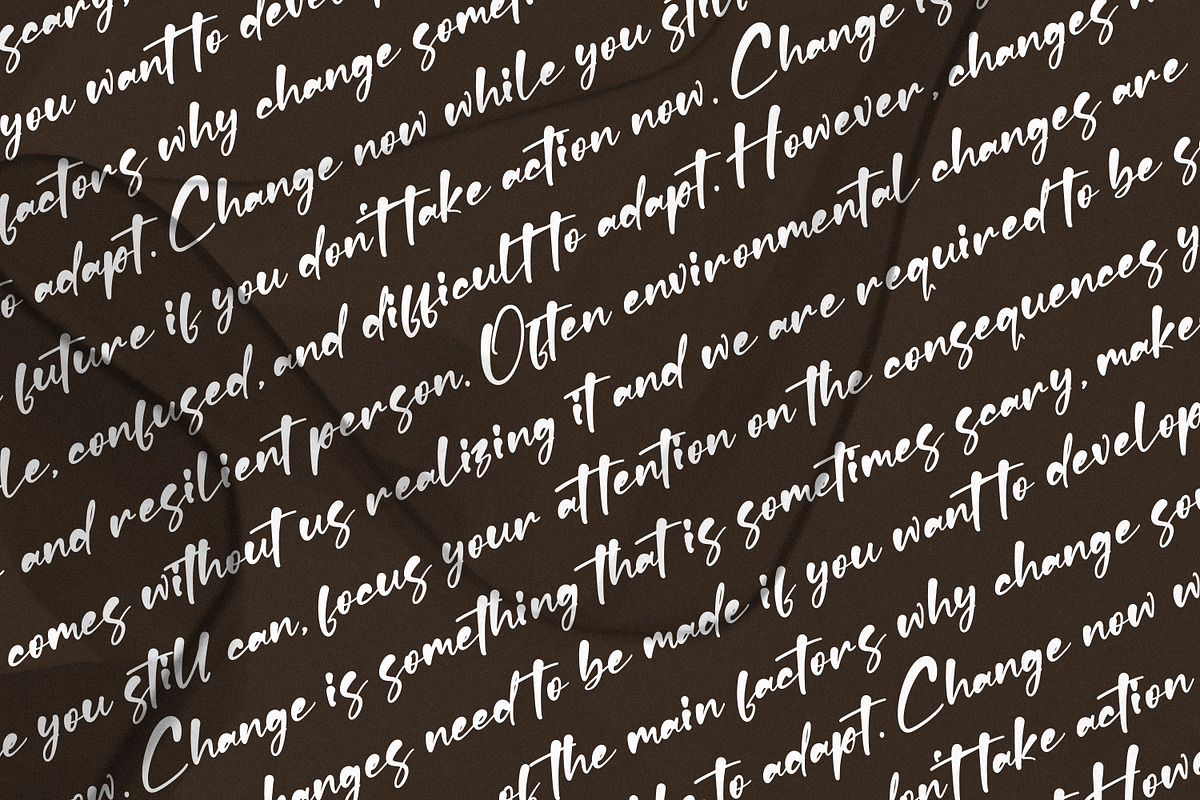 scary,
you want to develop
factors why change someti
to adapt. Change now while you still
future if you don't take action now. Change is
le, confused, and difficult to adapt. However, changes
and resilient person. Often environmental changes are
comes without us realizing it and we are required to be s
e you still can, focus your attention on the consequences y
ow. Change is something that is sometimes scary, make
hanges need to be made if you want to develop
of the main factors why change so
to adapt. Change now w
don't take action
Howe